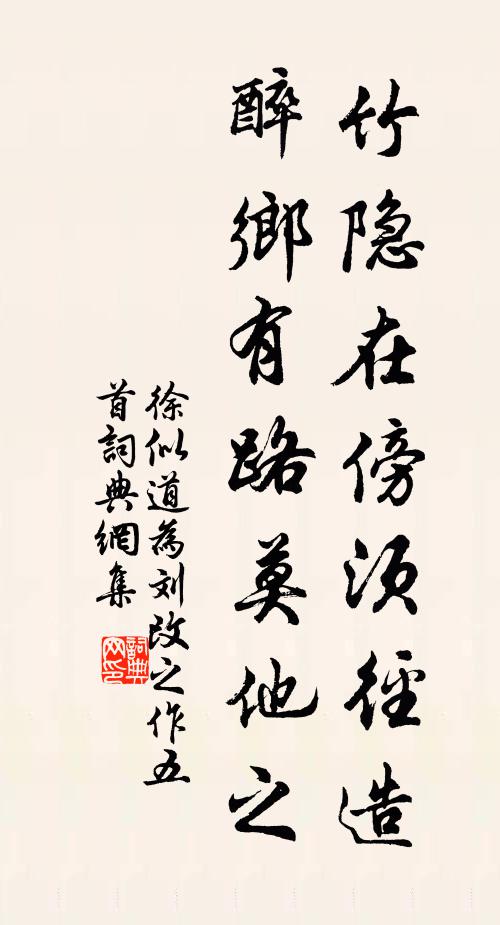 竹隐在傍须径造
醉鄉有路莫他之
徐似道為刘改之作五
首詞典網集
詞典
网印